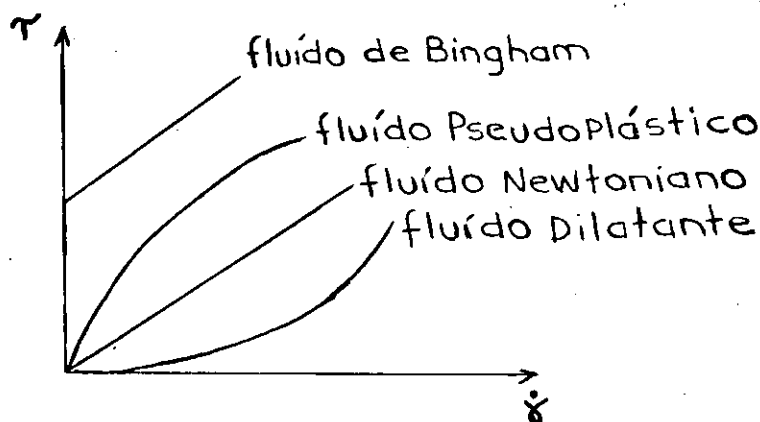 τ
fluído de Bingham
fluído Pseudoplástico
fluído Newtoniano
fluído Dilatante
γ̇